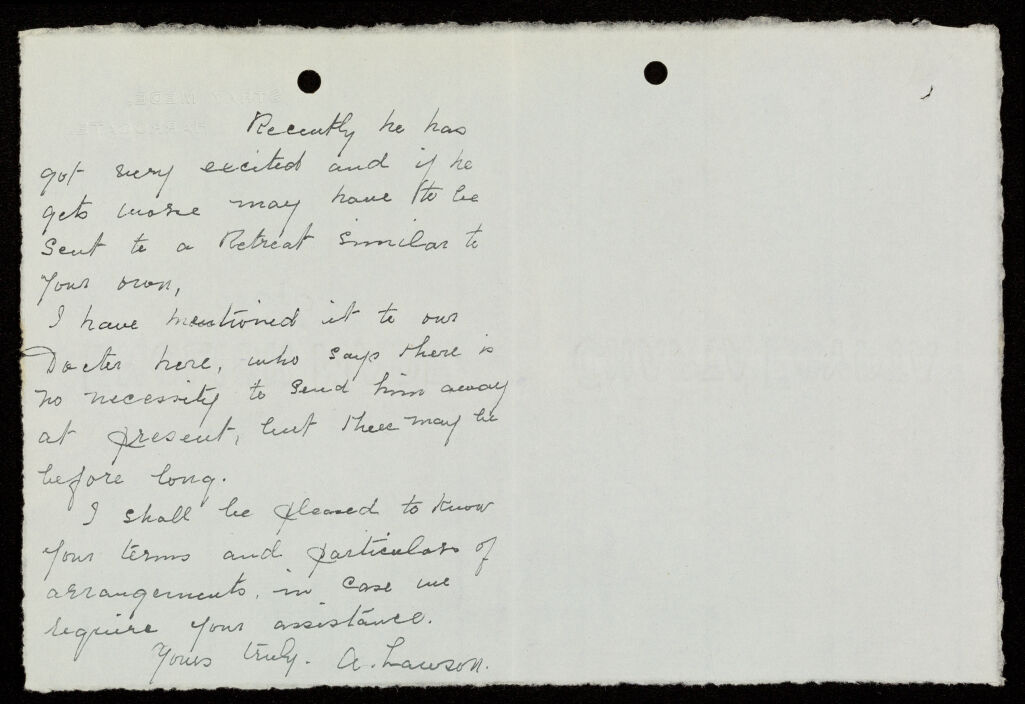 Recently he has
got very excited and if he
gets worse may have to be
sent to a Retreat similar to
your own,
I have mentioned it to our
Docter here, who says there is
no necessity to send him away
at present, but there may be
before long.
I shall be pleased to know
your terms and particulars of
arrangements, in case we
require your assistance.
Yours truly. A. Lawson.